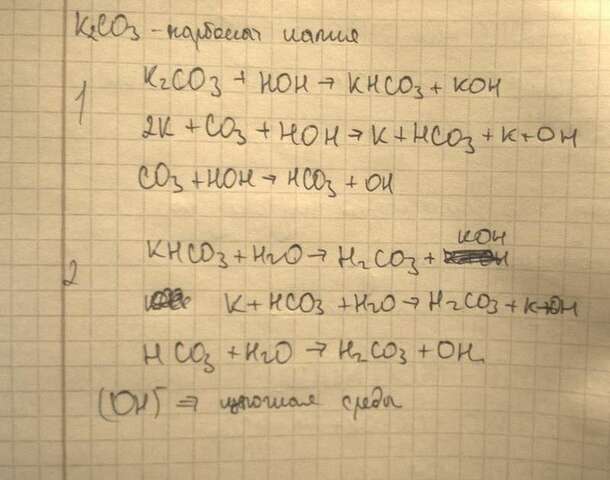 K₂CO₃ - карбонат калия
1
K₂CO₃ + HOH → KHCO₃ + KOH
2K + CO₃ + HOH → K + HCO₃ + K + OH
CO₃ + HOH → HCO₃ + OH
2
KHCO₃ + H₂O → H₂CO₃ + KOH
K + HCO₃ + H₂O → H₂CO₃ + K + OH
HCO₃ + H₂O → H₂CO₃ + OH.
(OH)⁻ ⇒ щелочная среда